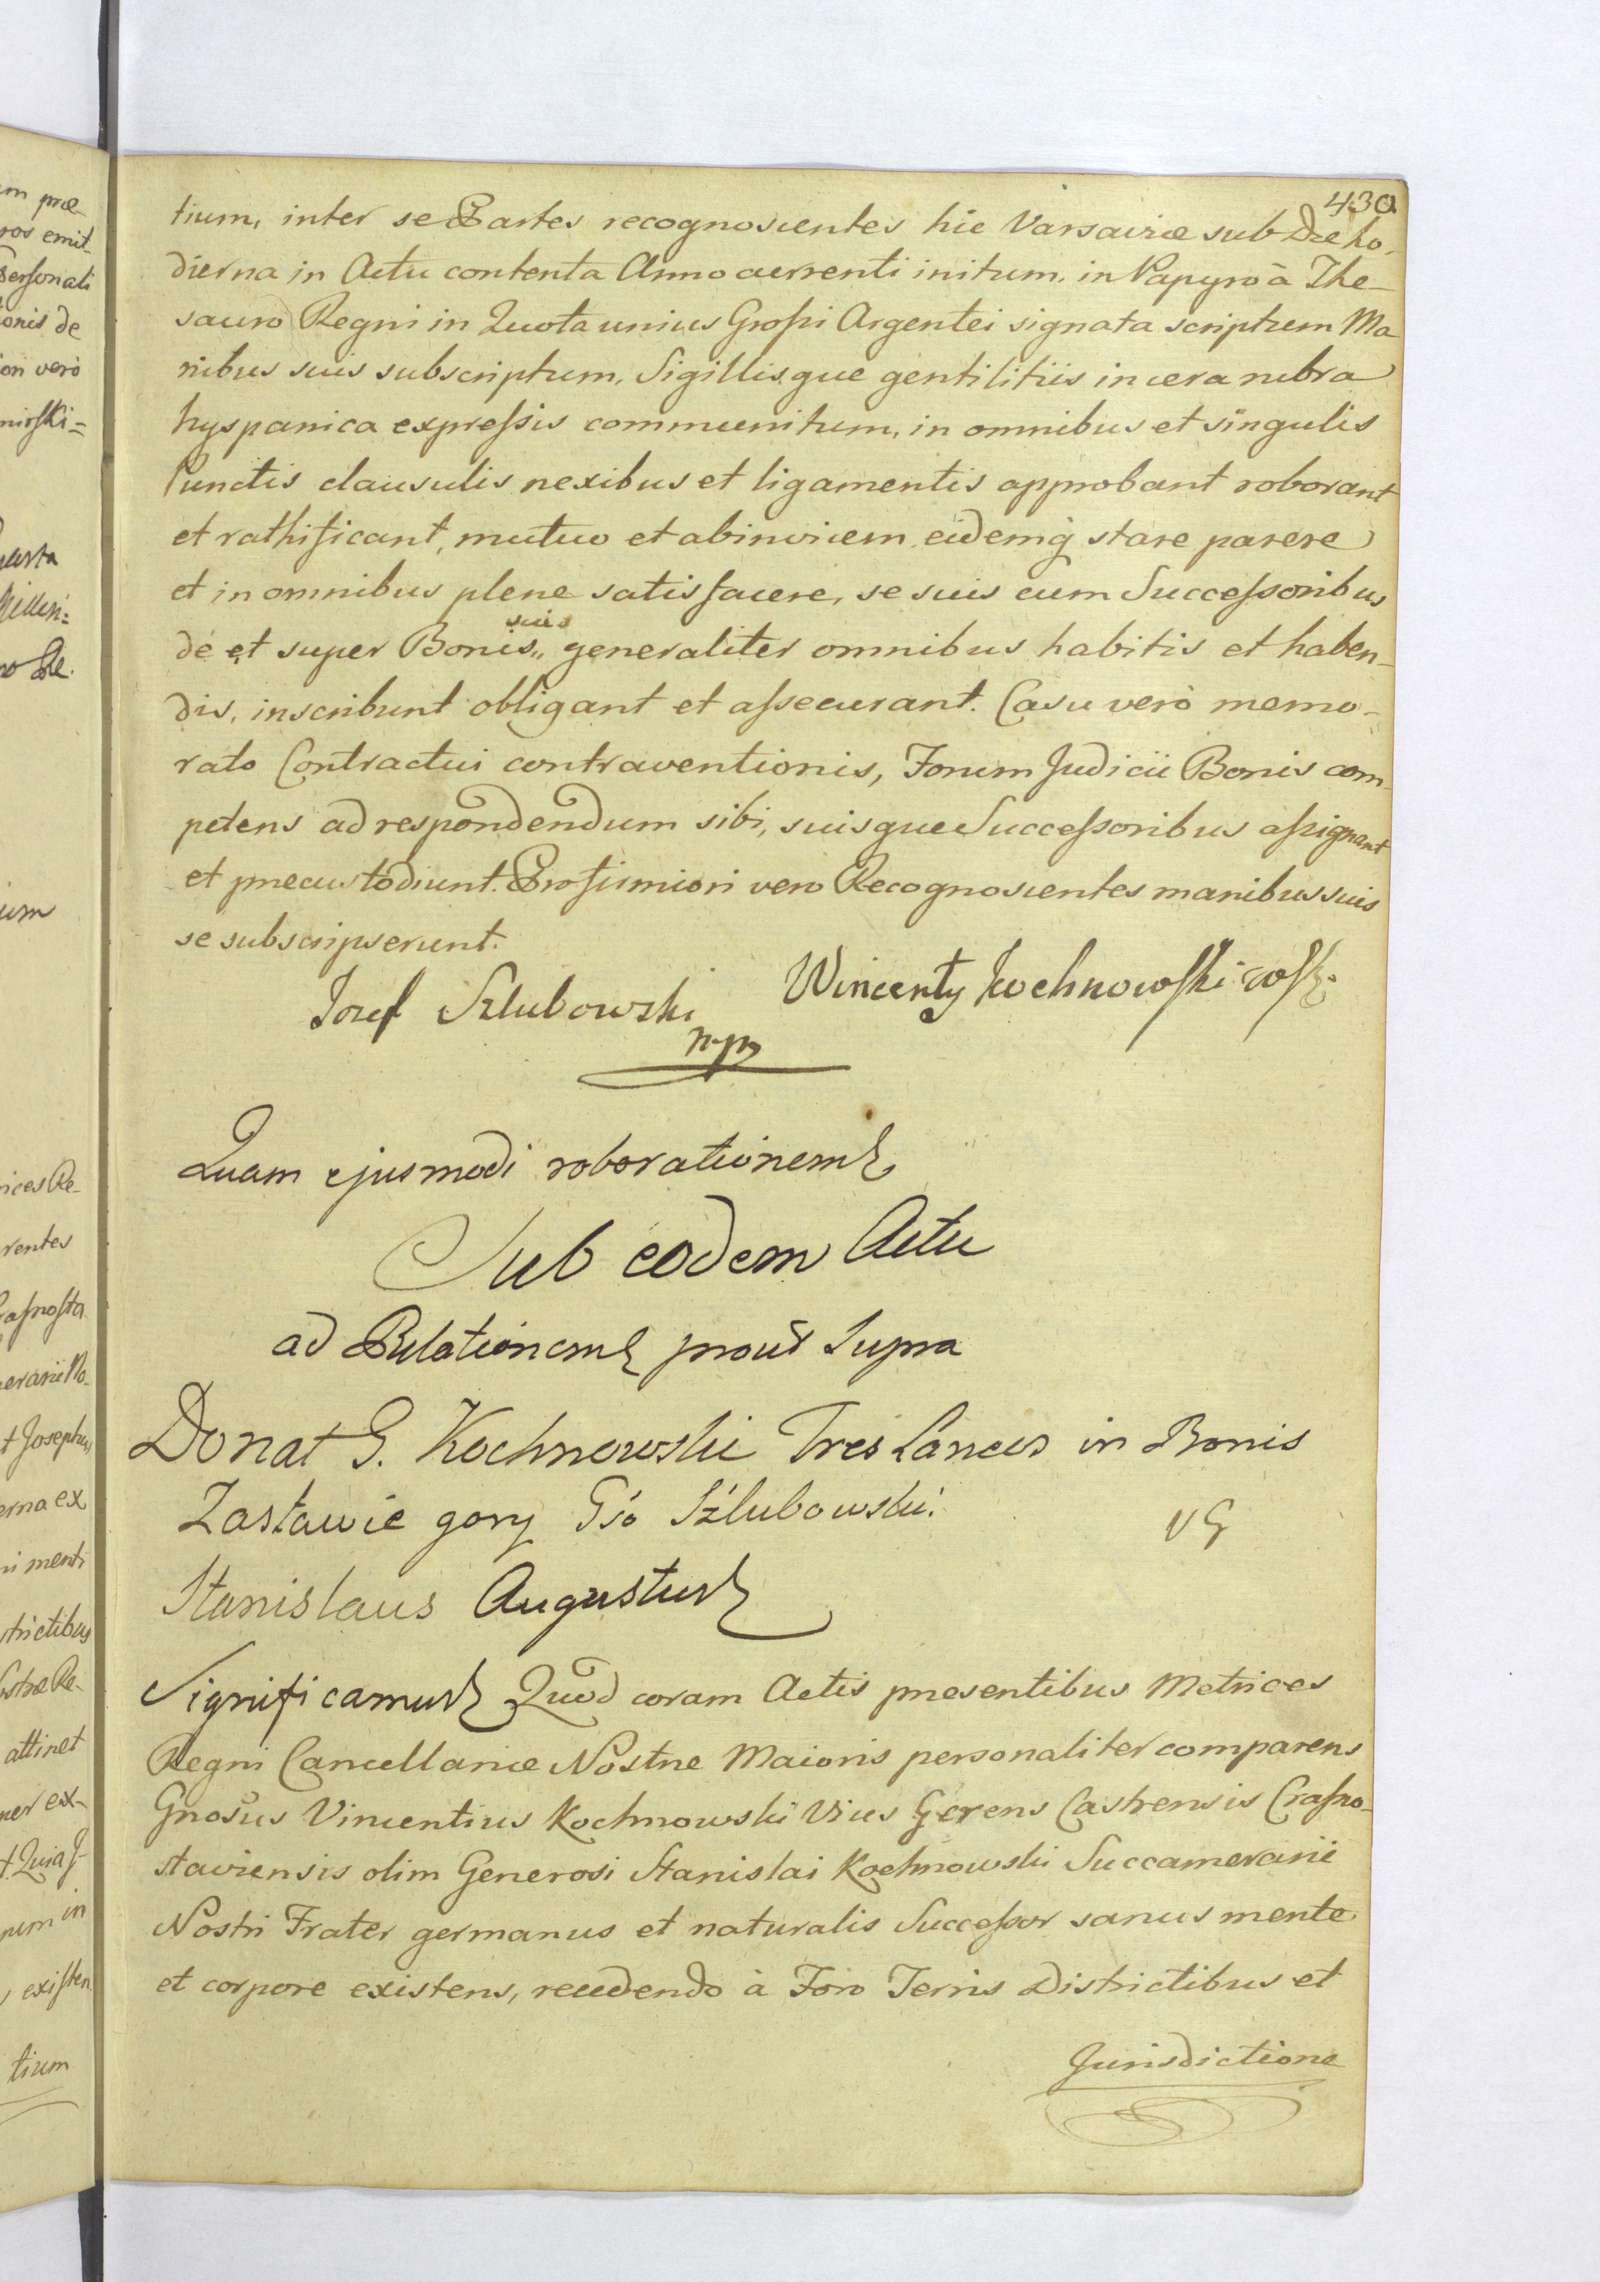 430
tium, inter se Partes recognoscentes hic Varsaviæ sub Die ho-
dierna in Actu contenta Anno currenti initum, in Papyro à The-
sauro Regni in Quota unius Grossi Argentei signata scriptum Ma
nibus suis subscriptum, Sigillisque gentilitiis in cera rubra
hyspanica expressis communitum, in omnibus et singulis
Punctis clausulis nexibus et ligamentis approbant roborant
et rathificant, mutuo et abinvicem eidemq stare parere
et in omnibus plene satisfacere, se suis cum Successoribus
de et super Bonis suis generaliter omnibus habitis et haben-
dis, inscribunt obligant et assecurant. Casu verò memo-
rato Contractui contraventionis, Forum Judicii Bonis com
petens ad respondendum sibi, suisque Successoribus assignant
et præcustodiunt. Pro firmiori vero Recognoscentes manibus suis
se subscripserunt.
Jozef Szlubowski Wincenty Kochnowski
mp
Quam ejusmodi roborationem
Sub eodem Actu
ad Relationem prout Supra
Donat G. Kochnowski Tres Laneos in Bonis
Zastawie gory Gśo Szlubowski.
VG
Stanislaus Augustus
Significamus Quod coram Actis præsentibus Metrices
Regni Cancellariæ Nostræ Maioris personaliter comparens
Gnosus Vincentius Kochnowski Vices Gerens Castrensis Crasno-
staviensis olim Generosi Stanislai Kochnowski Succamerarii
Nostri Frater germanus et naturalis Successor sanus mente
et corpore existens, recedendo à Foro Terris Districtibus et
Jurisdictione